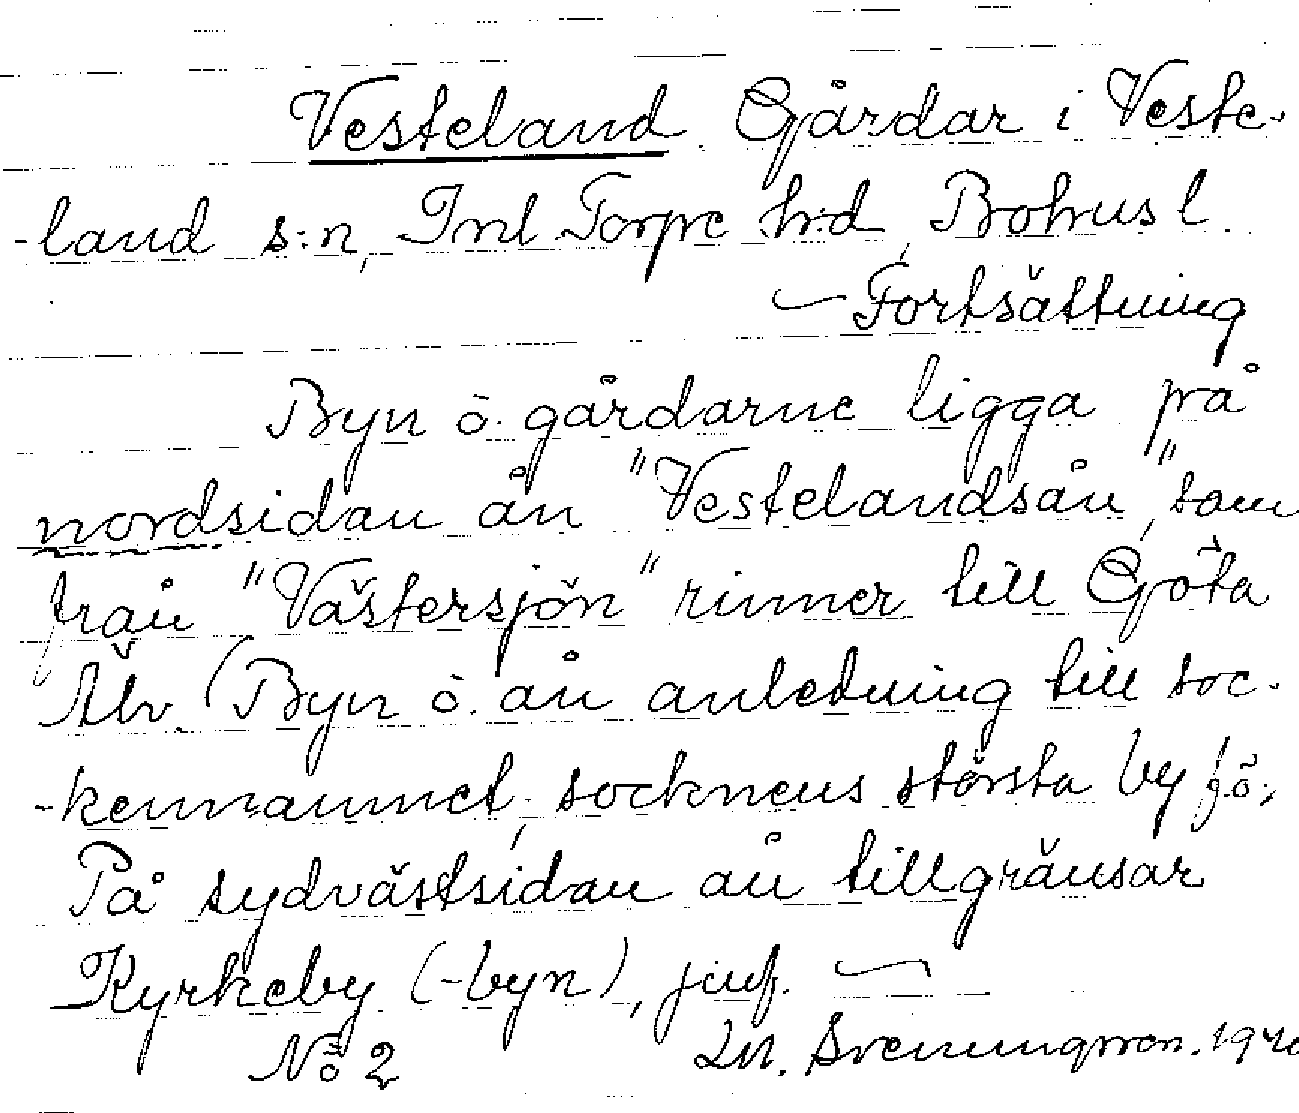 Vesteland. Gårdar i Veste-
-land s:n, Inl Torpe hrd, Bohus l.
— Fortsättning
Byn o. gårdarne ligga på
nordsidan ån "Vestelandsån", som
från "Västersjön" rinner till Göta
Älv. (Byn o. ån anledning till soc-
-kennamnet, socknens största by fö.,
På sydvästsidan ån tillgränsar
Kyrkeby (-byn), jmf. —
No 2 Svenungsson. 194